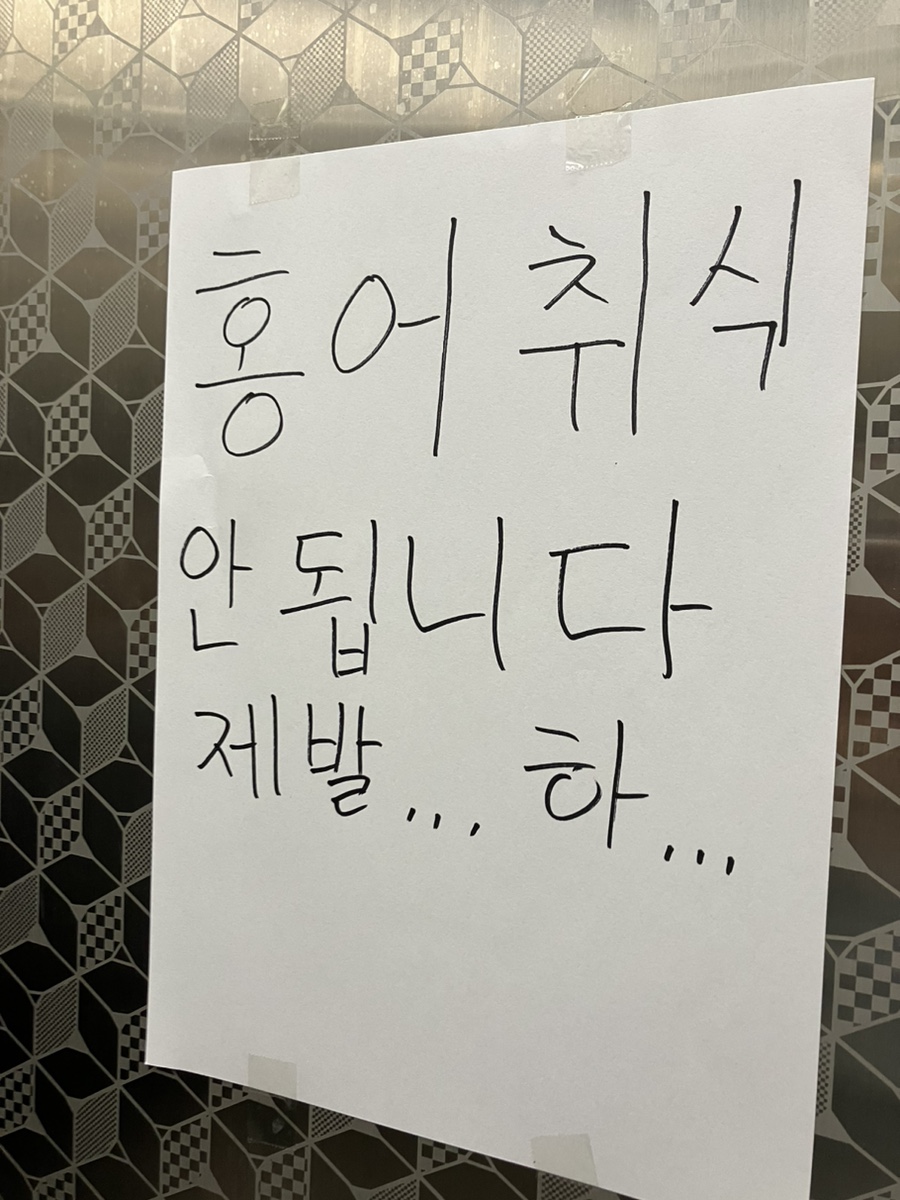 홍어 취식
안 됩니다
제발... 하...